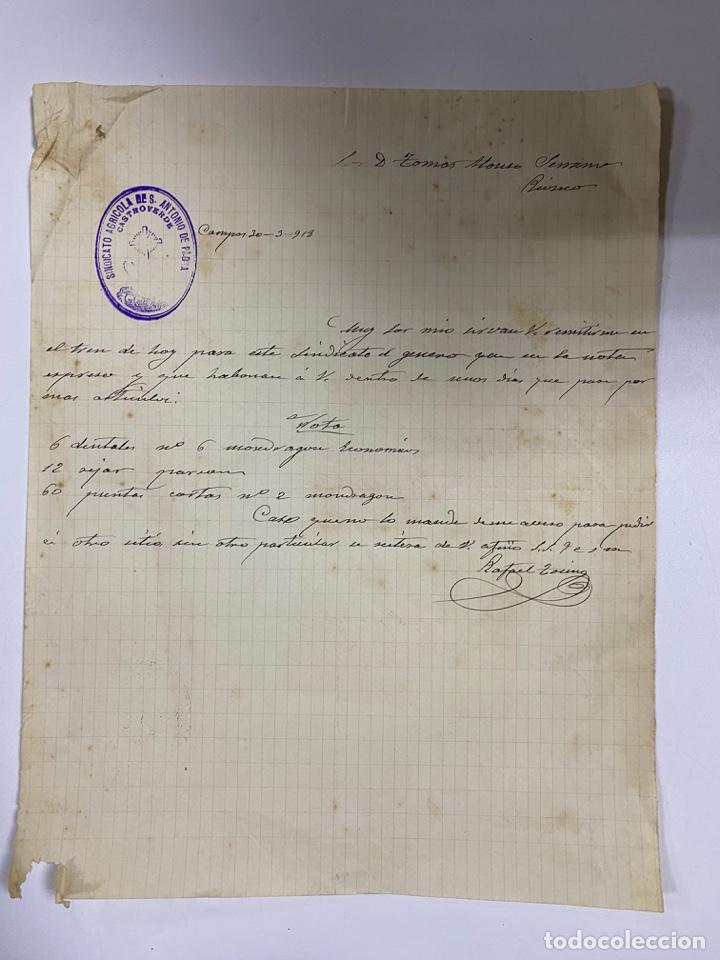 Sr D Tomas Alonso Serrano
Rioseco
SINDICATO AGRICOLA DE S. ANTONIO DE PADUA
CASTROVERDE
Campos 20-3-913
Muy Sor mio sirvan V. remitirme en
el tren de hoy para este sindicato el genero que en la nota
espreso y que habonan á V. dentro de unos dias que pase por
mas articulos.
Nota
6 dentales nº 6 mondragon Economicos
12 rejas
60 puntas cortas nº 2 mondragon
Caso que no lo mande deme aviso para pedir
á otro sitio, sin otro particular se reitera de V. afmo S.S. q e s m
Rafael
todocoleccion
todocoleccion.net